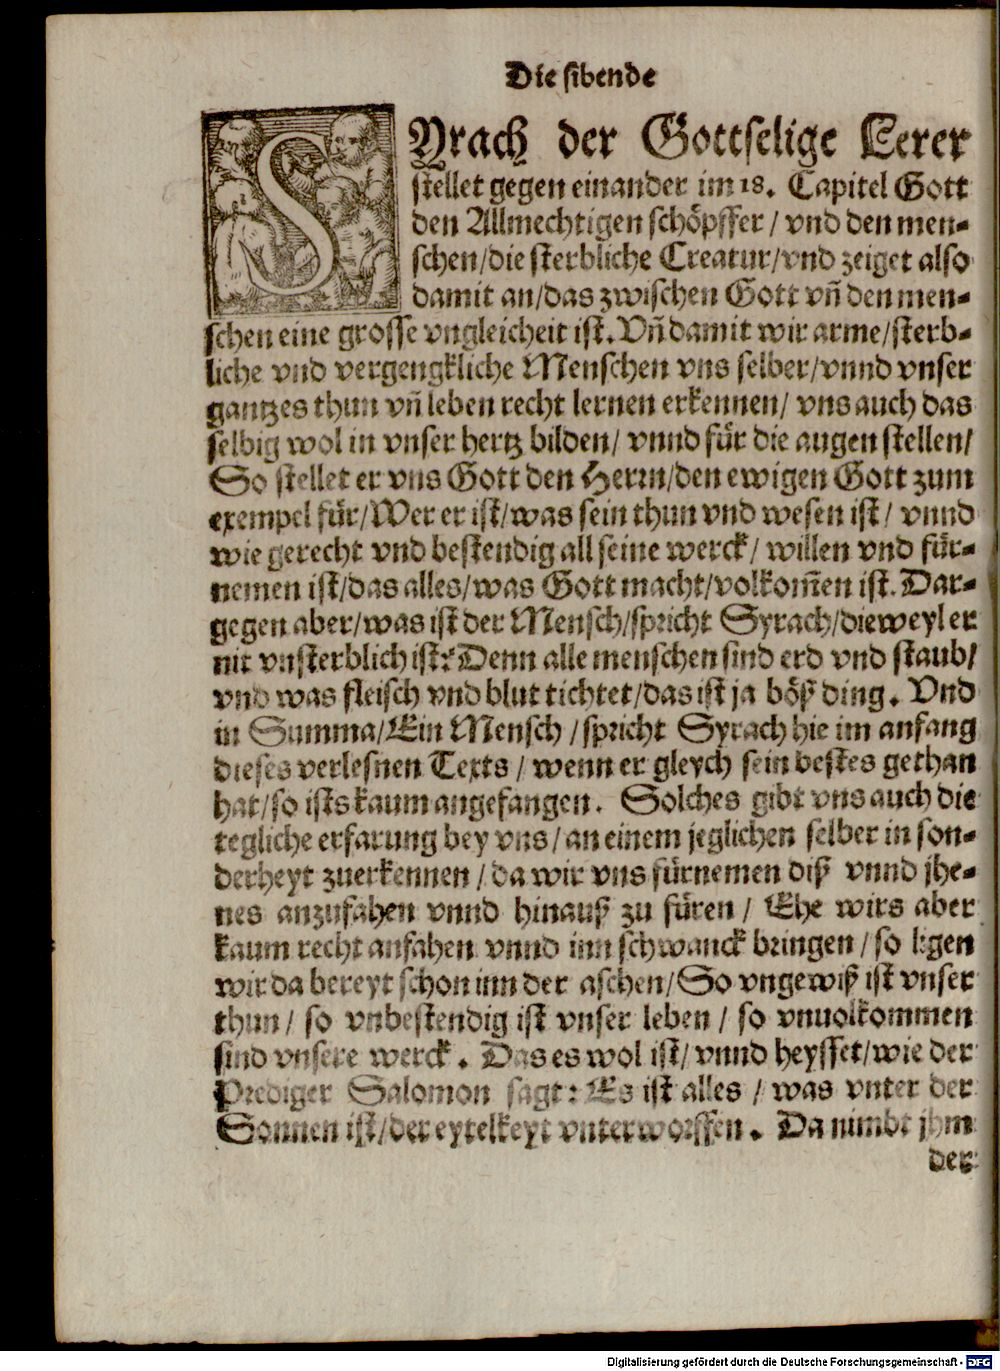 Die sibende
SYrach der Gottselige Lerer
stellet gegen einander im 18. Capitel Gott
den Allmechtigen schöpffer / vnd den men-
schen/die sterbliche Creatur/vnd zeiget also
damit an/das zwischen Gott vñ den men-
schen eine grosse vngleicheit ist. Vñ damit wir arme/sterb-
liche vnd vergengkliche Menschen vns selber/vnnd vnser
gantzes thun vñ leben recht lernen erkennen/ vns auch das
selbig wol in vnser hertz bilden/ vnnd für die augen stellen/
So stellet er vns Gott den Herrn/den ewigen Gott zum
exempel für/Wer er ist/was sein thun vnd wesen ist/ vnnd
wie gerecht vnd bestendig all seine werck/ willen vnd für-
nemen ist/das alles/was Gott macht/volkom̃en ist. Dar-
gegen aber/was ist der Mensch/spricht Syrach/dieweyl er
nit vnsterblich ist? Denn alle menschen sind erd vnd staub/
vnd was fleisch vnd blut tichtet/das ist ja böß ding. Vnd
in Summa/Ein Mensch /spricht Syrach hie im anfang
dieses verlesnen Texts / wenn er gleych sein bestes gethan
hat/so ists kaum angefangen. Solches gibt vns auch die
tegliche erfarung bey vns/an einem jeglichen selber in son-
derheyt zuerkennen / da wir vns fürnemen diß vnnd jhe-
nes anzufahen vnnd hinauß zu füren / Ehe wirs aber
kaum recht anfahen vnnd inn schwanck bringen / so ligen
wir da bereyt schon inn der aschen/So vngewiß ist vnser
thun/ so vnbestendig ist vnser leben / so vnuolkommen
sind vnsere werck. Das es wol ist/ vnnd heysset/wie der
Prediger Salomon sagt: Es ist alles / was vnter der
Sonnen ist/der eytelkeyt vnterworffen. Da nimbt jhm
der
Digitalisierung gefördert durch die Deutsche Forschungsgemeinschaft - DFG